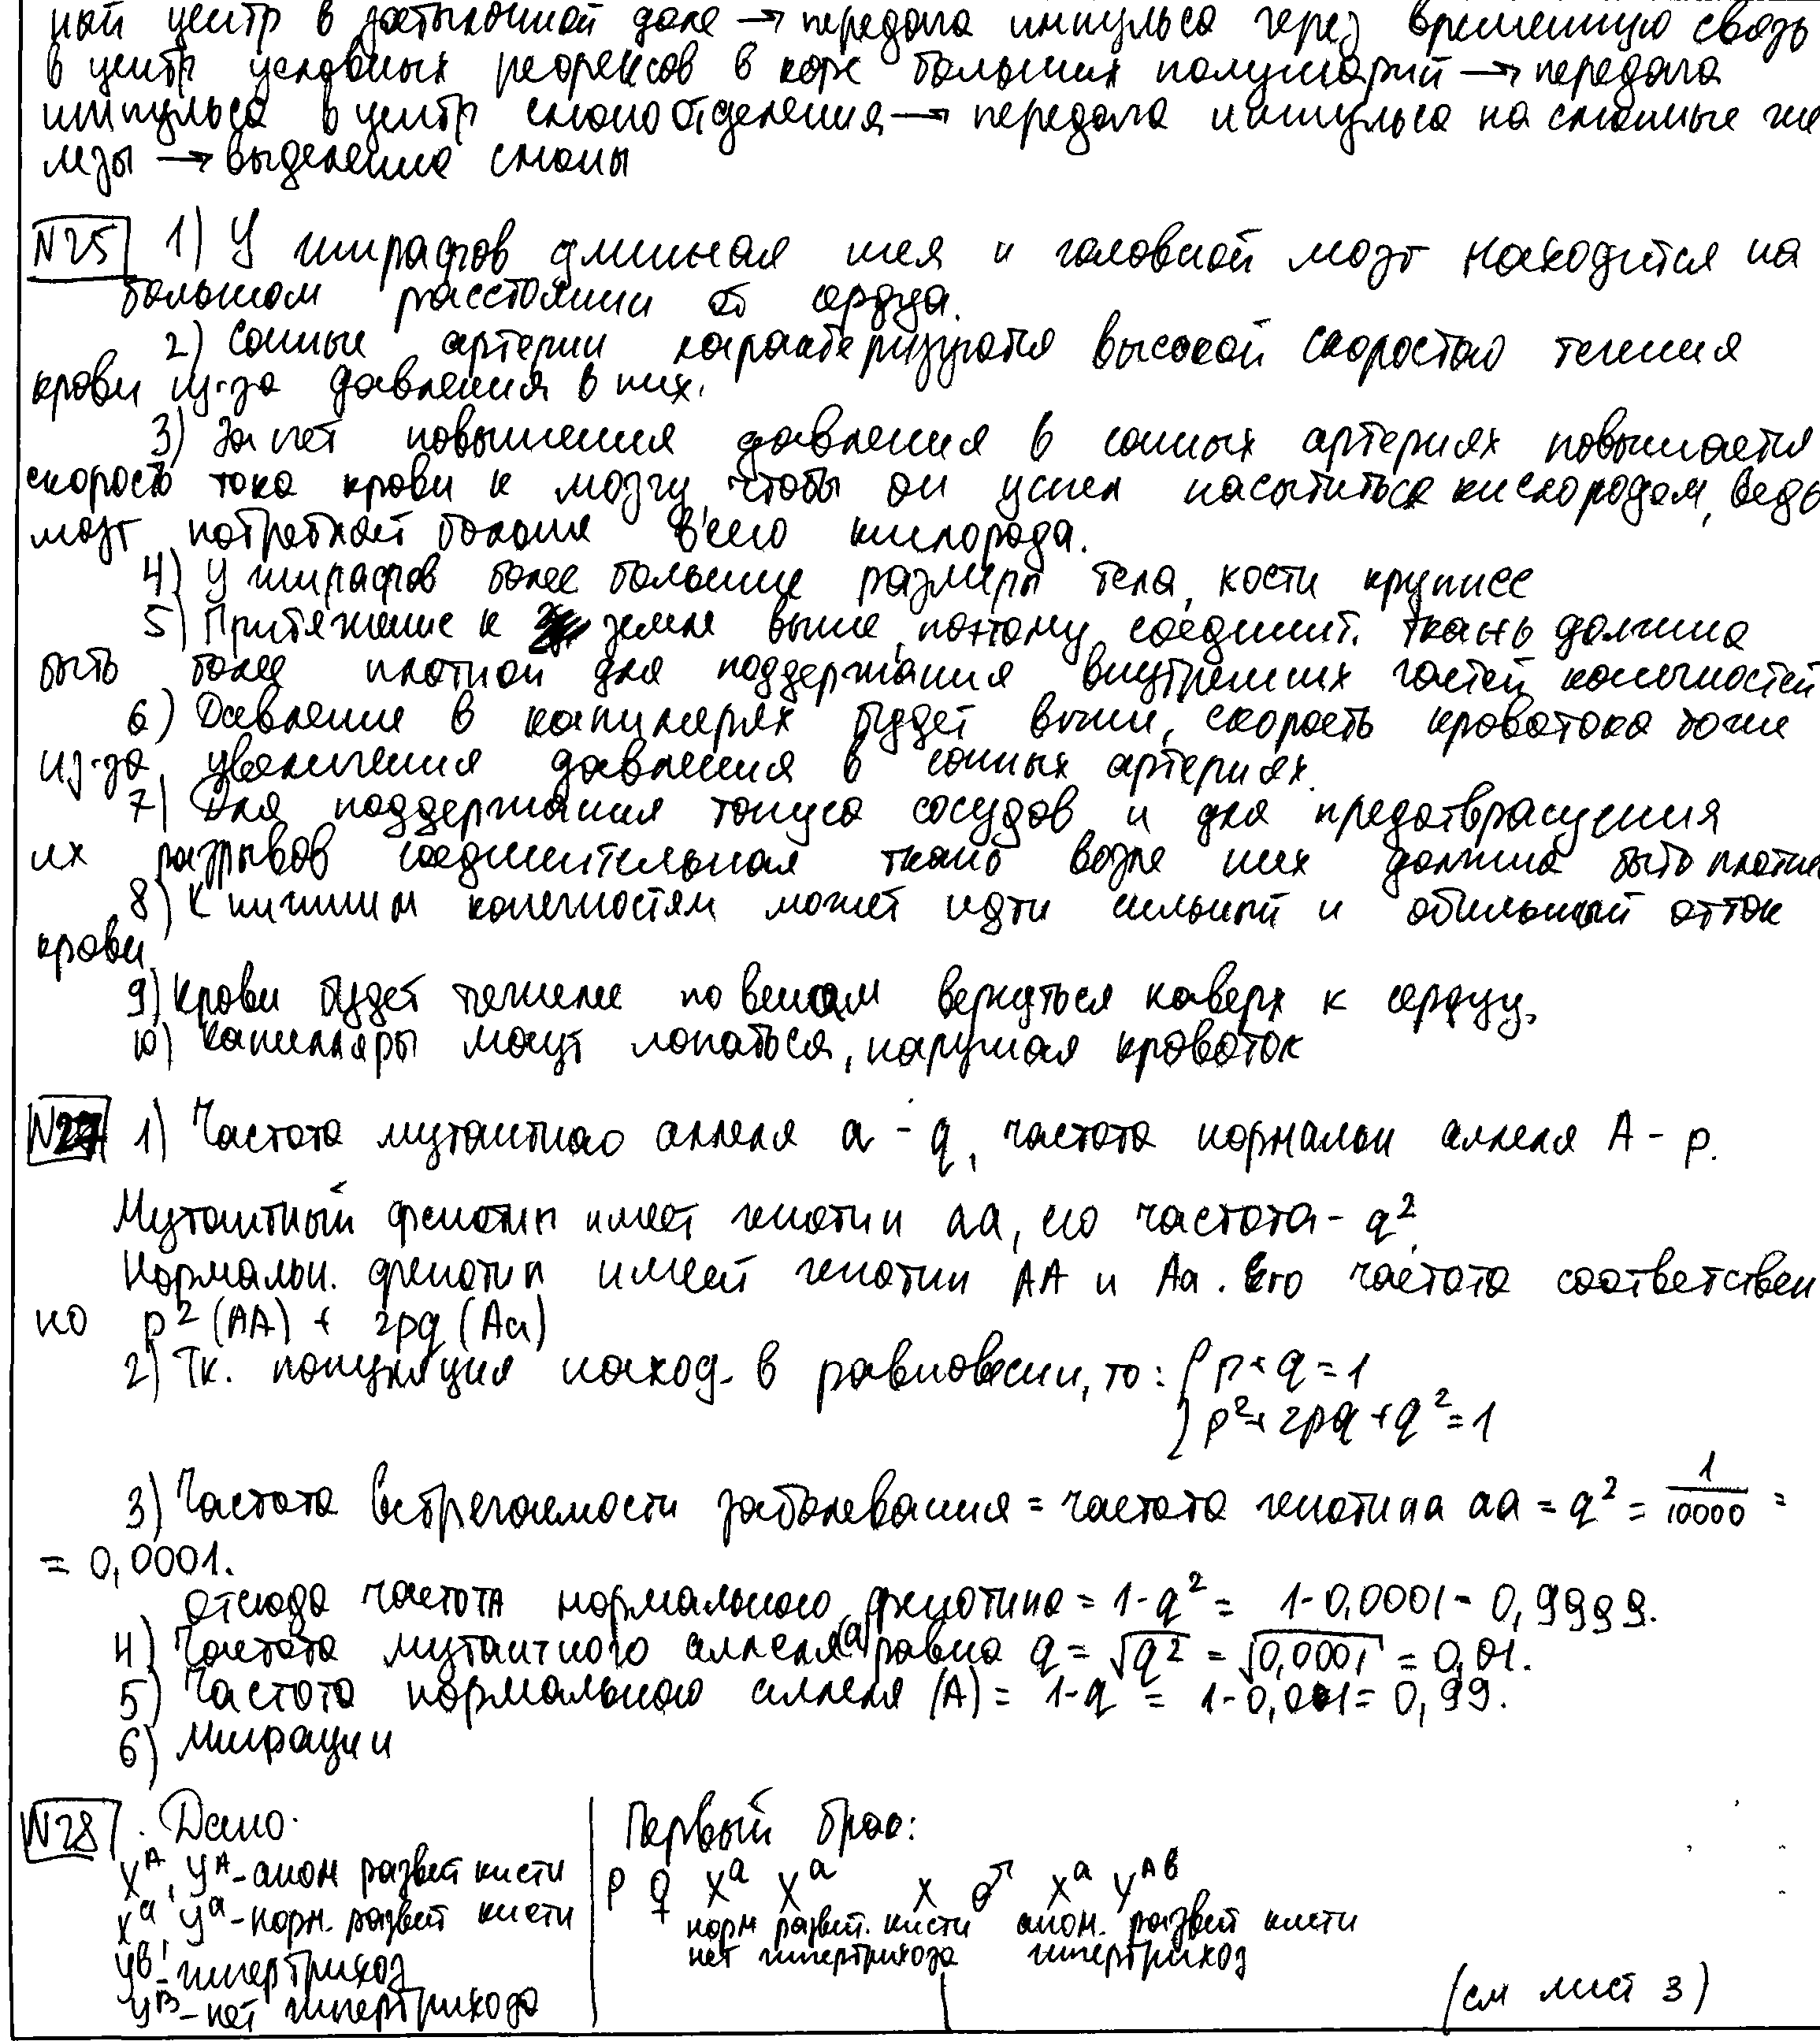 ный центр в затылочной доле → передача импульса через временную связь
в центр условных рефлексов в коре больших полушарий → передача
импульса в центр слюноотделения → передача импульса на слюнные же
лезы → выделение слюны
N25 1) У жирафов длинная шея и головной мозг находится на
большом расстоянии от сердца.
2) Сонные артерии характеризуются высокой скоростью течения
крови из-за давления в них.
3) За счет повышения давления в сонных артериях повышается
скорость тока крови к мозгу, чтобы он успел насытиться кислородом, ведь
мозг потребляет больше всего кислорода.
4) У жирафов более большие размеры тела, кости крупнее
5) Притяжение к земле выше, поэтому соединит. ткань должна
быть более плотной для поддержания внутренних частей конечностей
6) Давление в капилярях будет выше, скорость кровотока тоже
из-за увеличения давления в сонных артериях.
7) Для поддержания тонуса сосудов и для предотвращения
их разрывов соединительная ткань возле них должна быть плотне
8) К нижним конечностям может идти сильный и обильный отток
крови
9) Крови будет тяжелее по венам вернуться наверх к сердцу.
10) Капилляры могут лопаться, нарушая кровоток
N27 1) Частота мутантного аллеля а - q, частота нормальн аллеля А - p.
Мутантный фенотип имеет генотип аа, его частота - q²
Нормальн. фенотип имеет генотип АА и Аа. Его частота соответствен
но p² (АА) + 2pq (Аа)
2) Тк. популяция наход. в равновесии, то: { p + q = 1
p² + 2pq + q² = 1
3) Частота встречаемости заболевания = частота генотипа аа = q² = 1/10000 =
= 0,0001.
Отсюда частота нормального фенотипа = 1 - q² = 1 - 0,0001 = 0,9999.
4) Частота мутантного аллеля (а) равна q = √q² = √0,0001 = 0,01.
5) Частота нормального аллеля (А) = 1 - q = 1 - 0,01 = 0,99.
6) Миграции
N28. Дано:
Xᴬ, Yᴬ - аном развит кисти
Xᵃ, Yᵃ - норм. развит кисти
Yᵇ - гипертрихоз
Yᴮ - нет гипертрихоза
Первый брак:
P ♀ Xᵃ Xᵃ х ♂ Xᵃ Yᴬᵇ
норм развит. кисти аном. развит кисти
нет гипертрихоза гипертрихоз
(см лист 3)